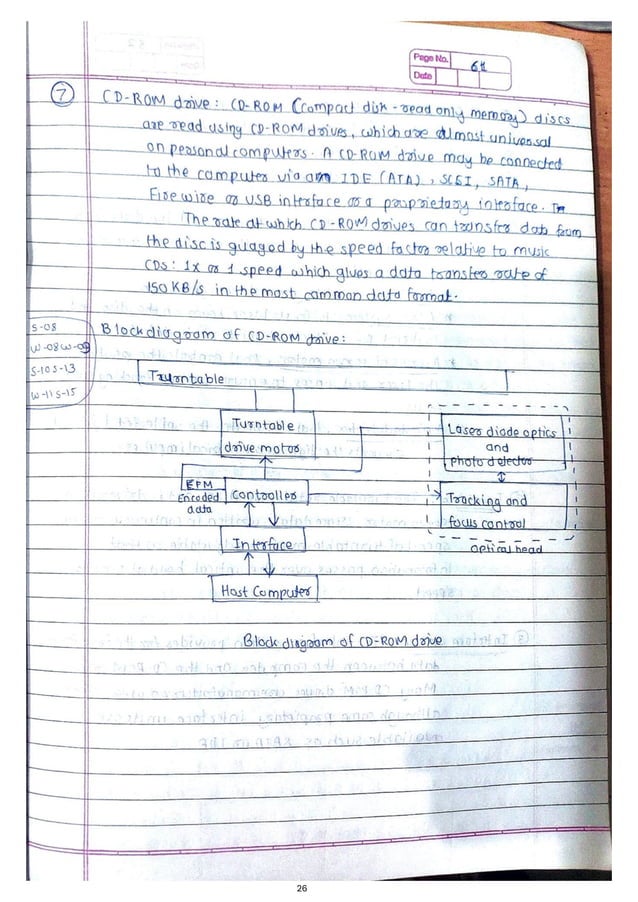 Page No. 61
Date
7 CD-ROM drive: CD-ROM (compact disk - read only memory) discs
are read using CD-ROM drives, which are almost universal
on personal computers. A CD-ROM drive may be connected
to the computer via an IDE (ATA), SCSI, SATA,
Firewire or USB interface or a proprietary interface.
The rate at which CD-ROM drives can transfer data from
the disc is guaged by the speed factor relative to music
CDs: 1x or 1 speed which gives a data transfer rate of
150 KB/s in the most common data format.
S-08
W-08 W-09
S-10 S-13
W-11 S-15
Block diagram of CD-ROM drive:
Turntable
Turntable
drive motor
Laser diode optics
and
photo detector
EFM
Encoded
data
Controller
Tracking and
focus control
Interface
optical head
Host Computer
Block diagram of CD-ROM drive
26